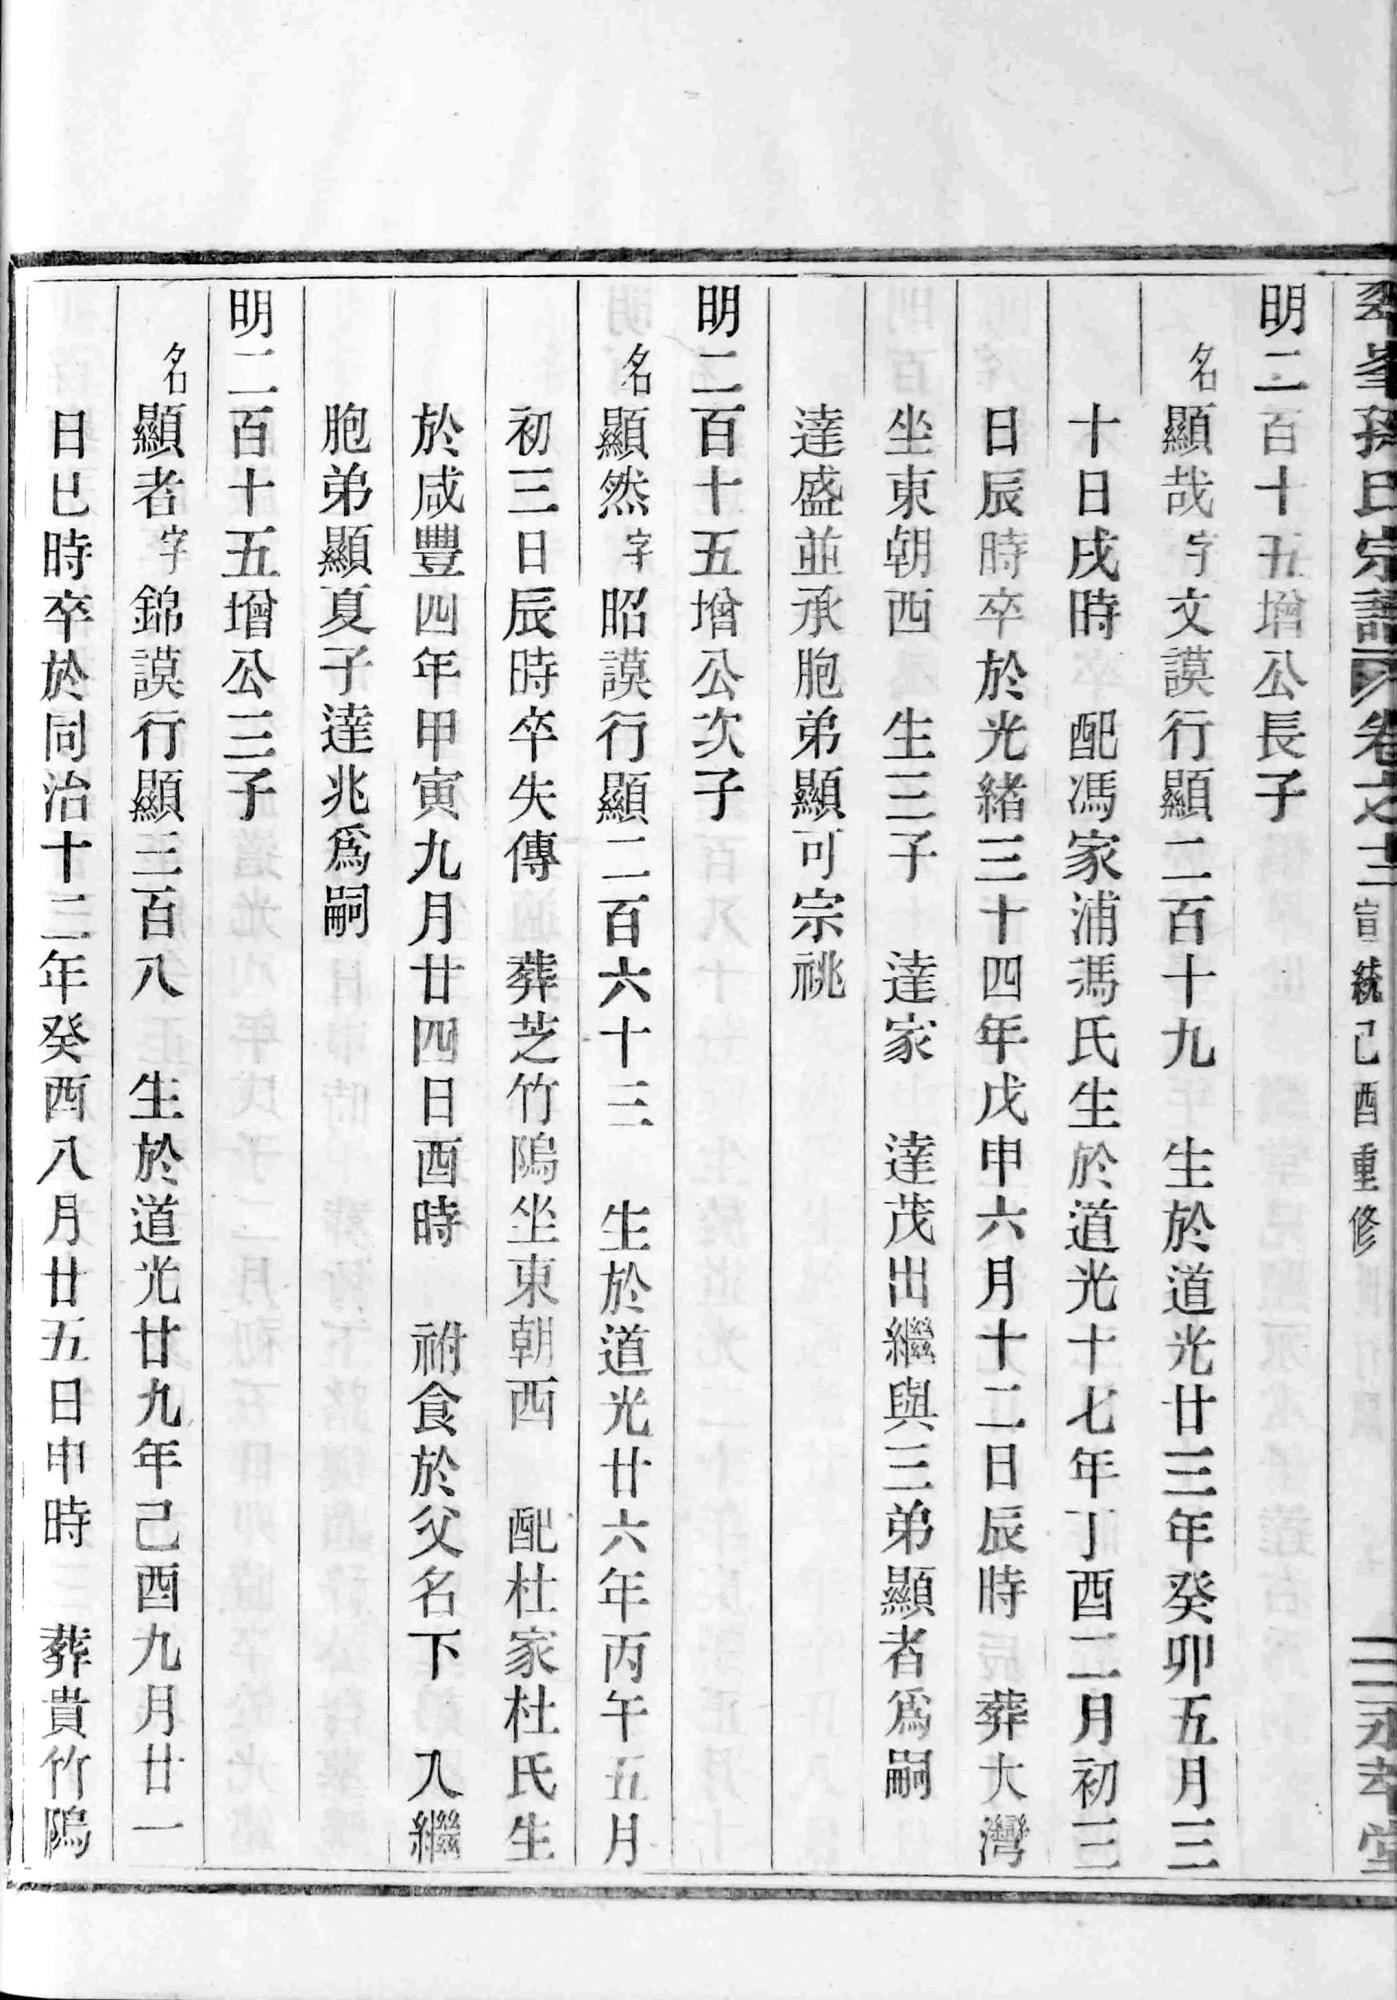 孫氏宗譜 卷之十二 宣統己酉重修 二 永萃堂
明二百十五增公長子
名顯哉字文謨行顯二百十九 生於道光廿三年癸卯五月三
十日戌時卒 配馮家浦馮氏生於道光十七年丁酉二月初三
日辰時卒於光緒三十四年戊申六月十二日辰時辰葬大灣
坐東朝西 生三子 達家 達茂出繼與三弟顯者爲嗣
達盛並承胞弟顯可宗祧
明二百十五增公次子
名顯然字昭謨行顯二百六十三 生於道光廿六年丙午五月
初三日辰時卒失傳 葬芝竹隖坐東朝西 配杜家杜氏生
於咸豐四年甲寅九月廿四日酉時 祔食於父名下 入繼
胞弟顯夏子達兆爲嗣
明二百十五增公三子
名顯者字錦謨行顯三百八 生於道光廿九年己酉九月廿一
日巳時卒於同治十二年癸酉八月廿五日申時 葬貴竹隖